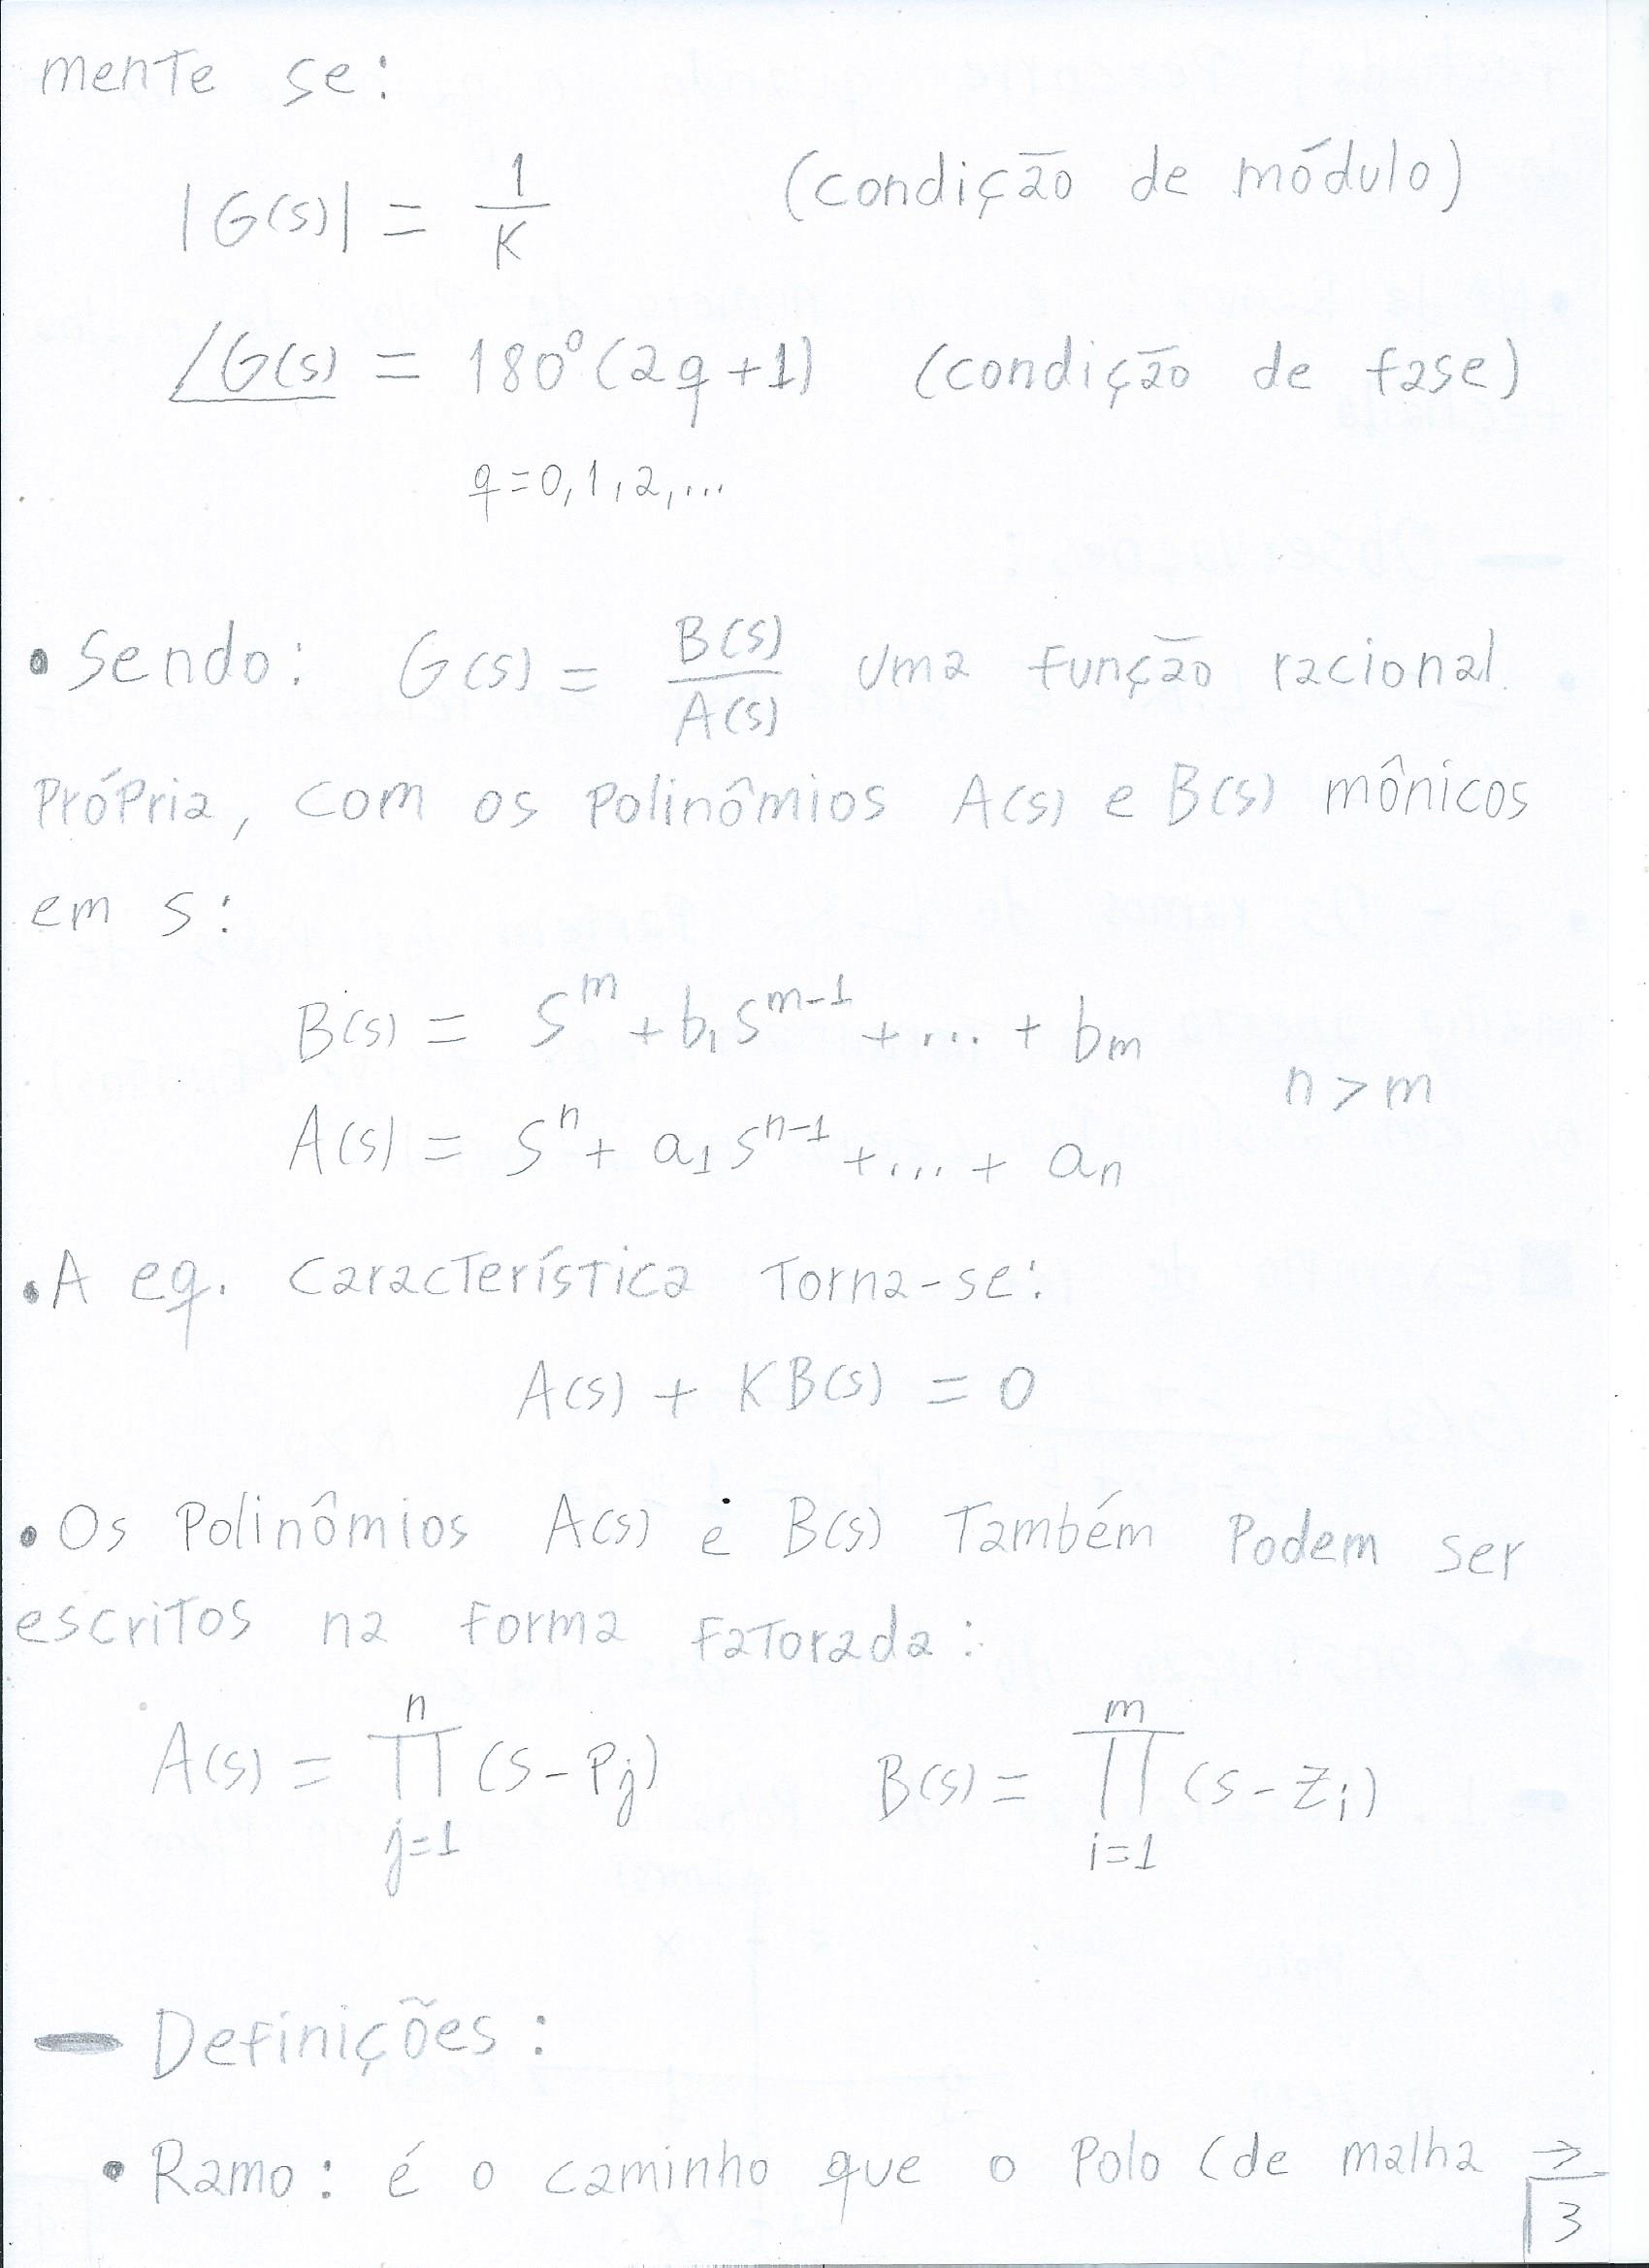 mente se:
|G(s)| = 1/K (condição de módulo)
∠G(s) = 180°(2q+1) (condição de fase)
q=0,1,2,...
• Sendo: G(s) = B(s)/A(s) uma função racional
Própria, com os polinômios A(s) e B(s) mônicos
em s:
B(s) = s^m + b₁s^(m-1) + ... + b_m
n > m
A(s) = s^n + a₁s^(n-1) + ... + a_n
• A eq. Característica Torna-se:
A(s) + KB(s) = 0
• Os Polinômios A(s) e B(s) Também Podem ser
escritos na forma fatorada:
A(s) = ∏_{j=1}^{n} (s - p_j) B(s) = ∏_{i=1}^{m} (s - z_i)
— Definições:
• Ramo: é o caminho que o Polo (de malha →
3